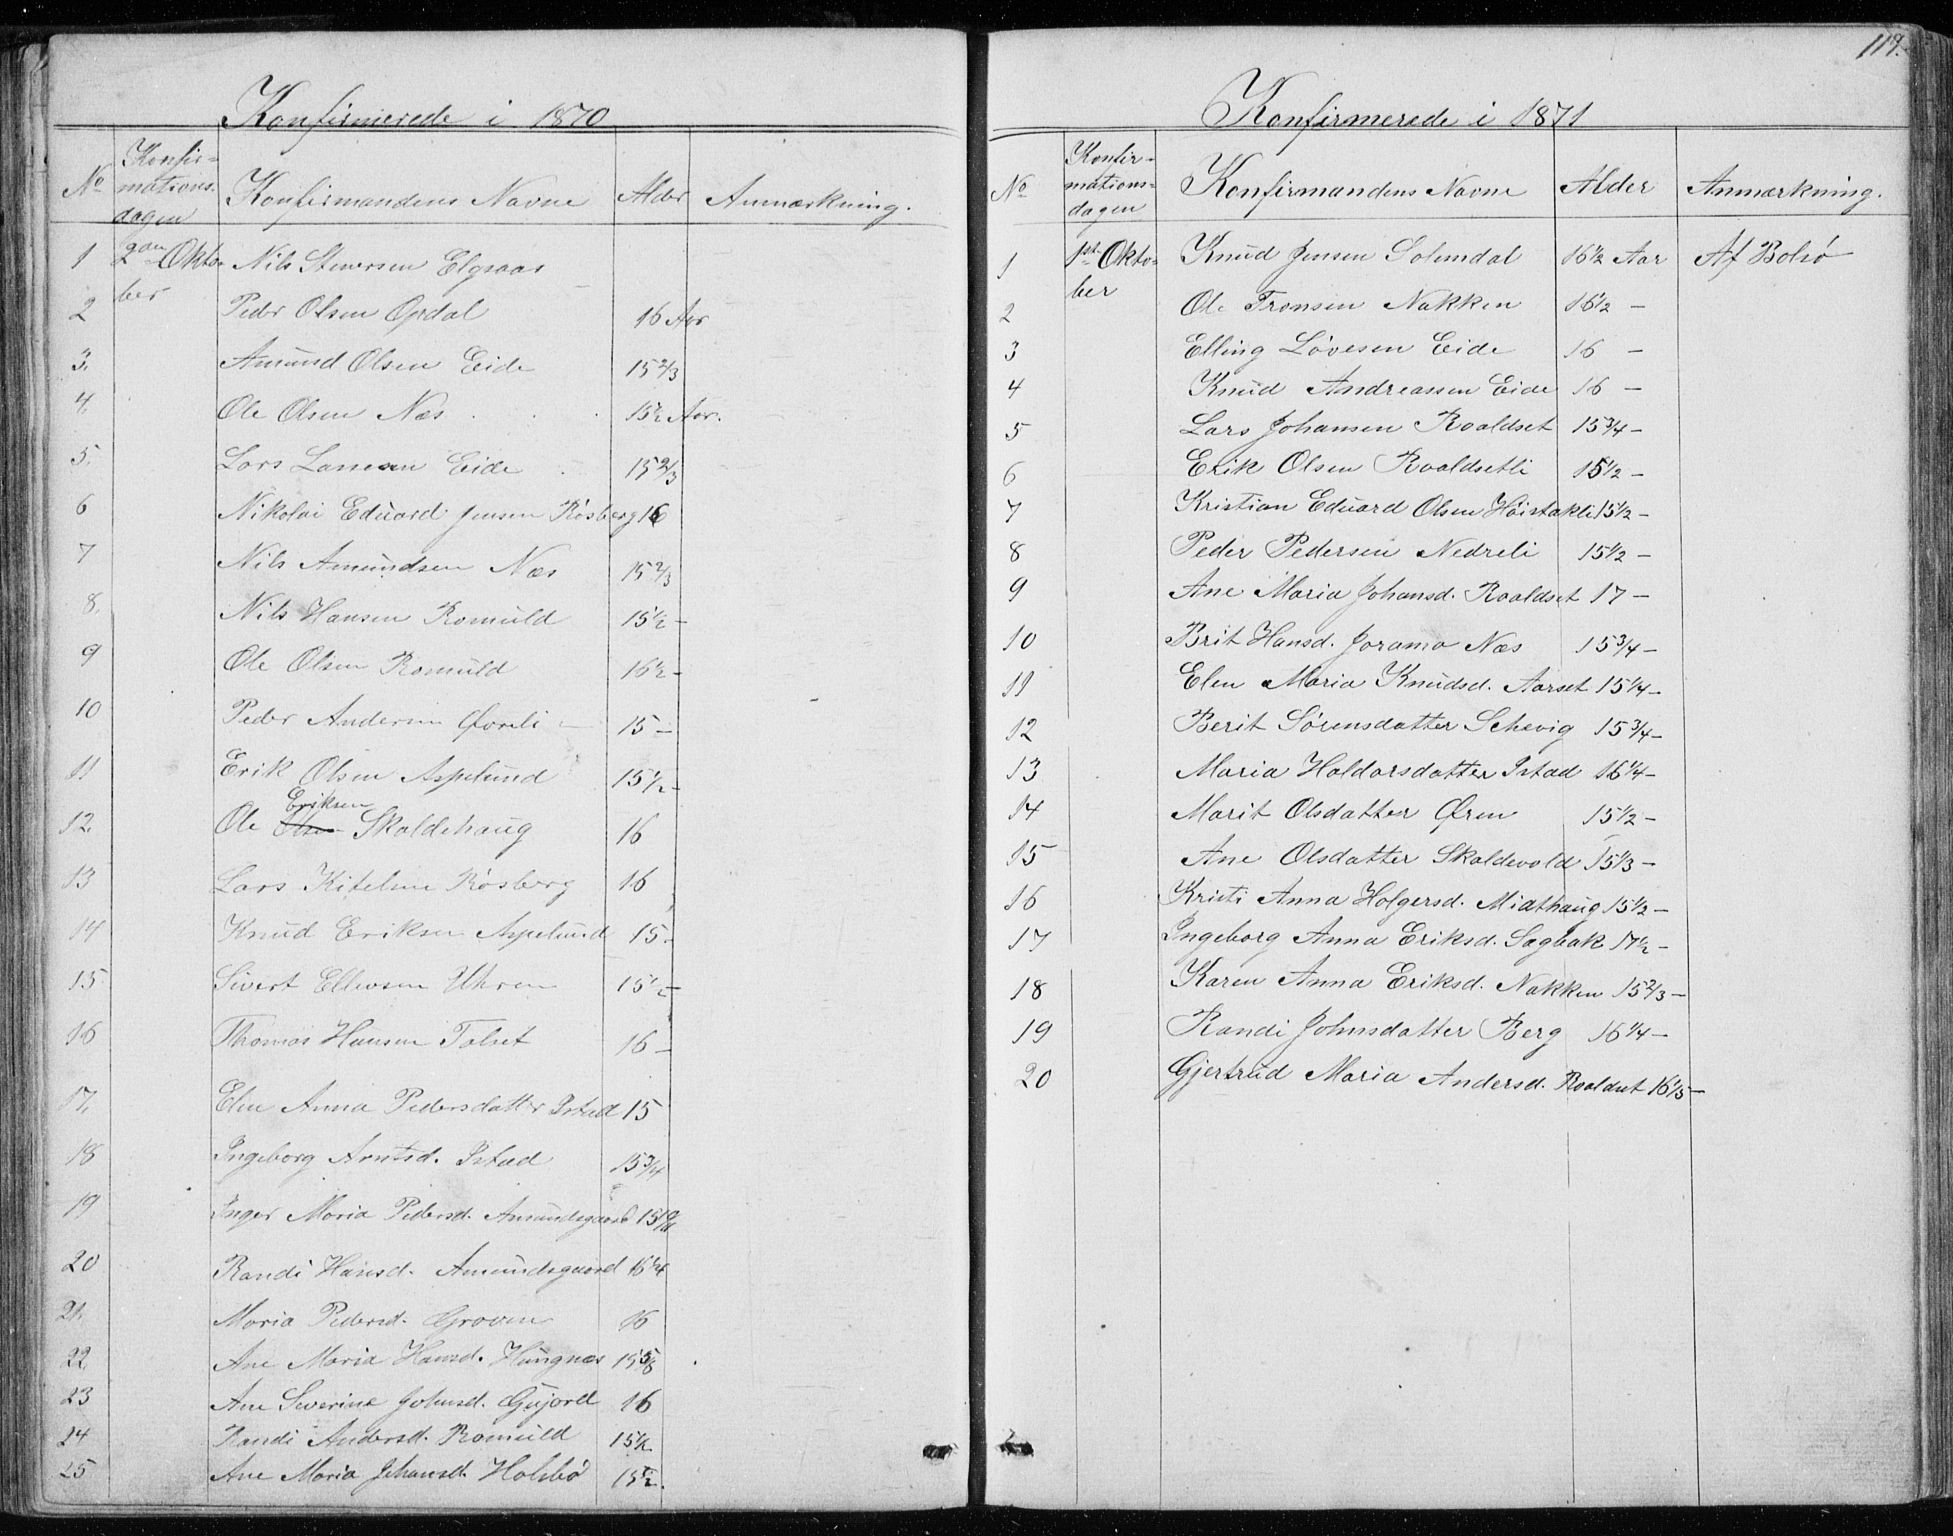 Konfirmerede i 1870
No Konfir=mations.dagen Konfirmandens Navne Alder Anmærkning.
1 2den Okto- Nils Siversen Elgsaas
ber
2 Peder Olsen Opdal 16 Aar
3. Amund Olsen Eide 15 2/3
4. Ole Olsen Næs 15 1/2 Aar.
5. Lars Larsen Eide 15 2/3
6 Nikolai Eduard Jensen Røsberg 16
7 Nils Amundsen Næs 15 2/3
8. Nils Hansen Romuld 15 1/2 -
9 Ole Olsen Romuld 16 1/2 -
10 Peder Andersen Øvreli 15 -
11 Erik Olsen Aspelund 15 1/2 -
Eriksen
12. Ole Olsen Skaldehaug 16
13 Lars Kitelsen Røsberg 16
14 Knud Eriksen Aspelund 15 -
15 Sivert Ellevsen Uhren 15 1/2 -
16 Thomas Hansen Talset 16 -
17. Elen Anna Pedersdatter Istad 15
18 Ingeborg Arntsd. Istad 15 3/4
19 Inger Maria Pedersd. Amundsgaard 15
20 Randi Hansd. Amundsgaard
21. Maria Pedersd. Groven 16
22. Ane Maria Hansd. Hungnes
23 Ane Severine Johnsd. Gujord 16
24 Randi Andersd. Romuld 15 1/2.
25 Ane Maria Johansd. Holsbø 15 1/2.
119.
Konfirmerede i 1871
No Konfir-mations=dagen Konfirmandens Navne Alder Anmærkning.
1 1ste Okto- Knud Jensen Solemdal 16 1/2 Aar Af Bolsø
ber
2 Ole Tronsen Nakken 16 1/2 -
3 Elling Løvesen Eide 16 -
4 Knud Andreassen Eide 16 -
5 Lars Johansen Roaldset 15 3/4 -
6 Erik Olsen Roaldsetli 15 1/2 -
7 Kristian Eduard Olsen Høistakli 15 1/2 -
8 Peder Pedersen Nedreli 15 1/2 -
9 Ane Maria Johansd. Roaldset 17 -
10 Brit Hansd. Joramo Næs 15 3/4 -
11 Elen Maria Knudsd. Aarset 15 1/4 -
12 Berit Sørensdatter Schevig 15 3/4 -
13 Maria Haldorsdatter Istad 16 1/4 -
14 Marit Olsdatter Øren 15 1/2 -
15 Ane Olsdatter Skaldevold 15 1/3 -
16 Kristi Anna Holgersd. Midthaug 15 1/2 -
17 Ingeborg Anna Eriksd. Sagbak 17 1/2 -
18 Karen Anna Eriksd. Nakken 15 2/3 -
19 Randi Johnsdatter Berg 16 1/4 -
20 Gjertrud Maria Andersd. Roaldset 16 1/5 -